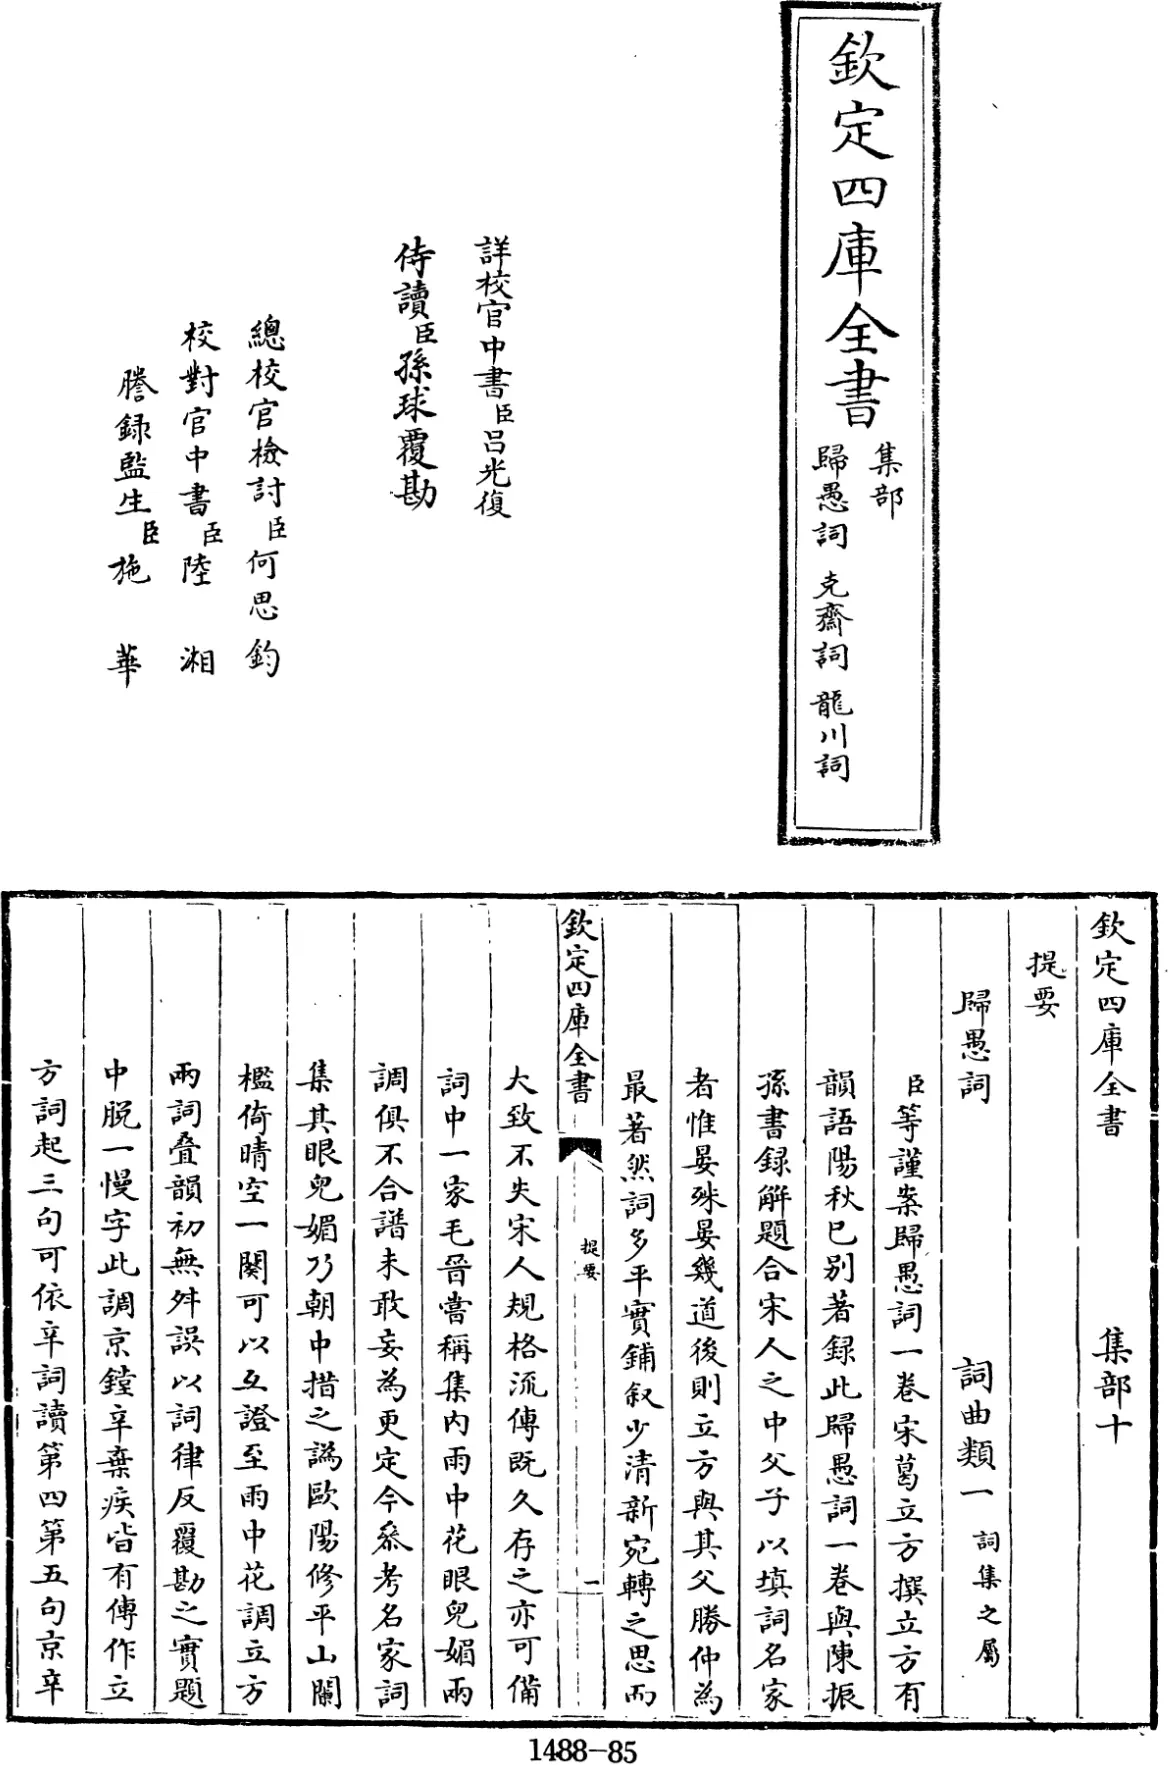 欽定四庫全書
集部
歸愚詞 克齋詞 龍川詞
詳校官中書臣呂光復
侍讀臣孫球覆勘
總校官檢討臣何思鈞
校對官中書臣陸湘
謄録監生臣施華
欽定四庫全書 集部十
提要
歸愚詞 詞曲類一 詞集之屬
臣等謹案歸愚詞一卷宋葛立方撰立方有
韻語陽秋已别著録此歸愚詞一卷與陳振
孫書録解題合宋人之中父子以填詞名家
者惟晏殊晏幾道後則立方與其父勝仲為
最著然詞多平實鋪叙少清新宛轉之思而
欽定四庫全書 提要 一
大致不失宋人規格流傳既久存之亦可備
詞中一家毛晉嘗稱集内雨中花眼兒媚兩
調俱不合譜未敢妄為更定今叅考名家詞
集其眼兒媚乃朝中措之譌歐陽修平山闌
檻倚晴空一闋可以互證至雨中花調立方
兩詞叠韻初無舛誤以詞律反覆勘之實題
中脱一慢字此調京鏜辛棄疾皆有傳作立
方詞起三句可依辛詞讀第四第五句京辛
1488-85